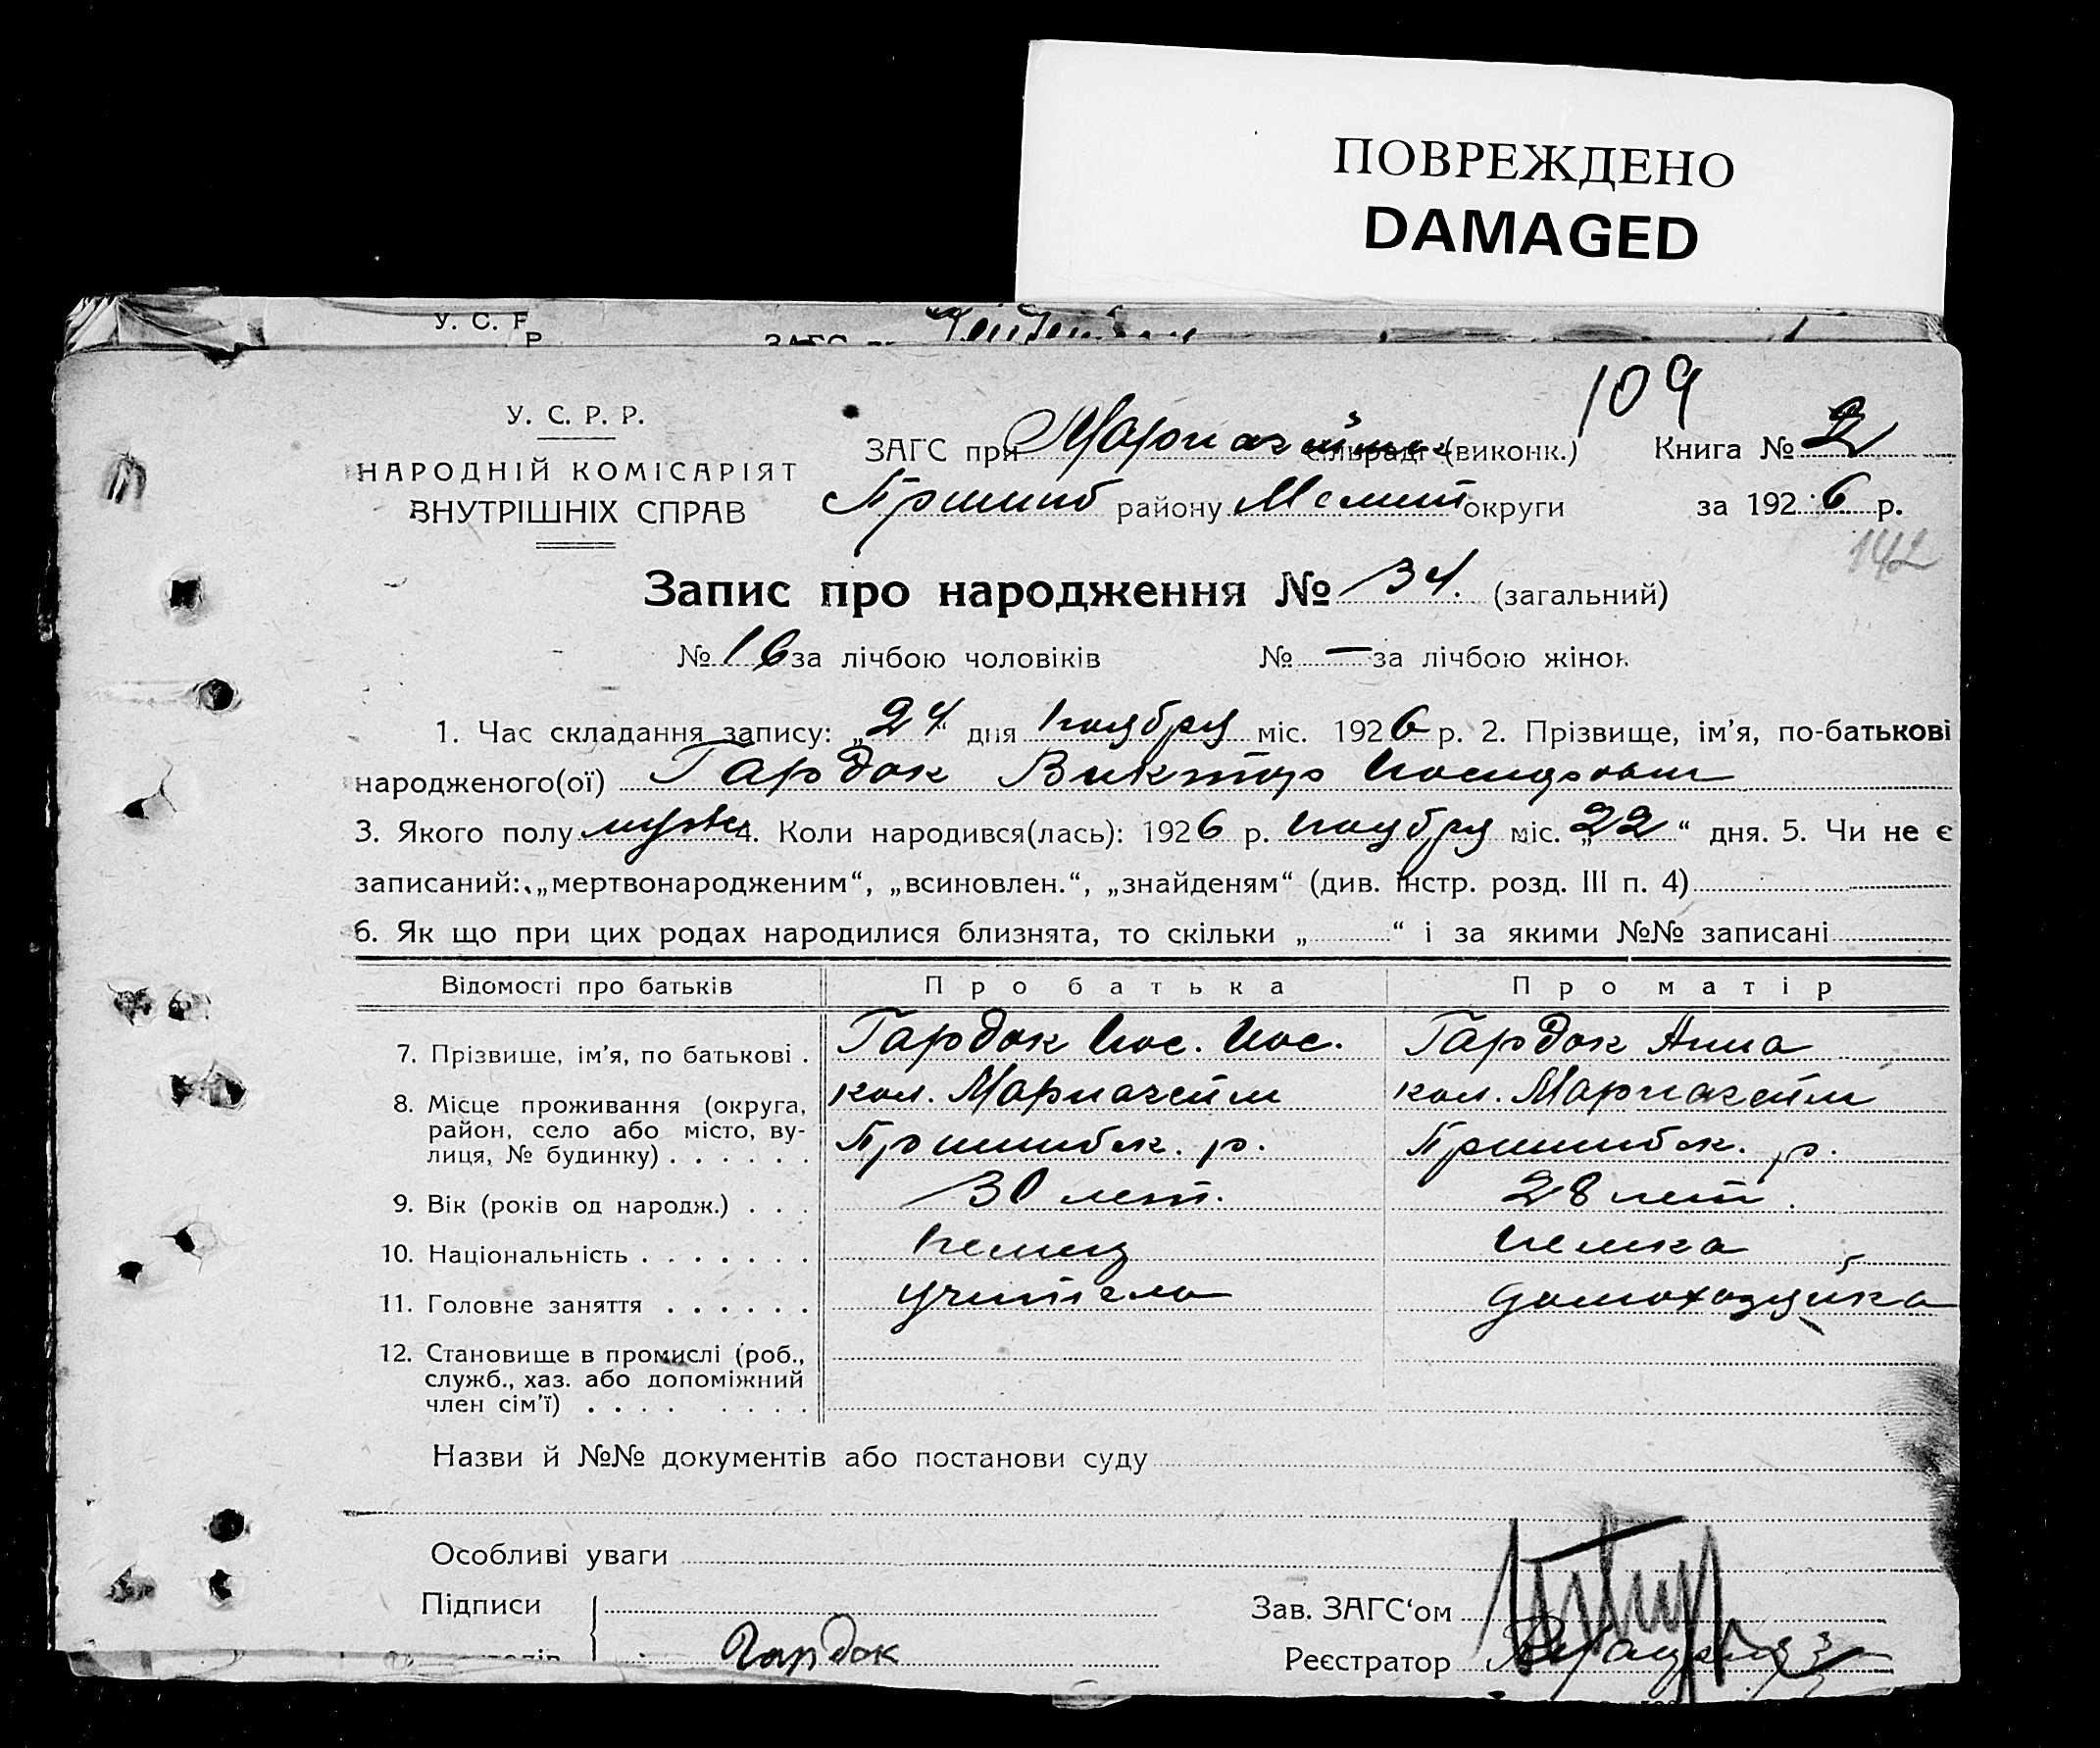 ПОВРЕЖДЕНО
DAMAGED
У. С. Р
Р
109
У. С. Р. Р.
НАРОДНІЙ КОМІСАРІЯТ
ВНУТРІШНІХ СПРАВ
ЗАГС при сільраді (виконк.) Книга № 2
Пришиб району Мелит округи за 1926 р.
142
Запис про народження № 34. (загальний)
№ 16 за лічбою чоловіків № — за лічбою жінок
1. Час складання запису: „24“ дня ноября міс. 1926 р. 2. Прізвище, ім’я, по-батькові
народженого(ої) Гардок Виктор Иосифович
3. Якого полу муж 4. Коли народився(лась): 1926 р. ноября міс. „22“ дня. 5. Чи не є
записаний: „мертвонародженим“, „всиновлен.“, „знайденям“ (див. інстр. розд. III п. 4)
6. Як що при цих родах народилися близнята, то скільки „ “ і за якими №№ записані
Відомості про батьків Про батька Про матір
7. Прізвище, ім’я, по батькові . Гардок Иос. Иос. Гардок Анна
8. Місце проживання (округа, район, село або місто, вулиця, № будинку) . . . . . . кол. Мариагейм кол. Мариагейм
Пришибск. р. Пришибск. р.
9. Вік (років од народж.) . . . 30 лет. 28 лет.
10. Національність . . . . . . . немец немка
11. Головне заняття . . . . . . учитель домохозяйка
12. Становище в промислі (роб.,
служб., хаз. або допоміжний
член сім’ї) . . . . . . . .
Назви й №№ документів або постанови суду
Особливі уваги
Підписи Зав. ЗАГС‘ом
Гардок Реєстратор